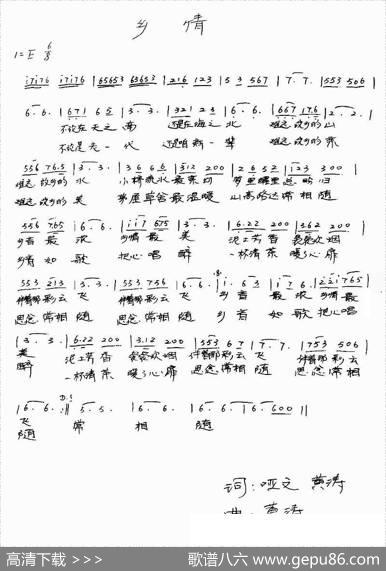 乡情
1=E 6/8
i7i76 i7i76 | 65653 65653 | 216 123 | 5 3 567 | 7. 7. | 553 506 |
6. 6. | 671 65 | 3. 3. | 321 23 | 6. 6. | 667 176 | 2. 2. |
不论在天之南 还是在海之北 难忘故乡的山
不论是老一代 还是新一辈 难忘故乡的茶
556 765 | 3. 3. | 36 66 | 312 200 | 26 52 | 123 200 |
难忘故乡的水 小桥流水最亲切 梦里醒里总盼归
难忘故乡的美 茅屋草舍最温暖 山高路远常相随
556 765 | 6. 6. | 117 675 | 3. 3. | 6.22 200 | 3.62 200 |
乡音最浓 乡情最美 泥土芳香 袅袅炊烟
乡音如歌 把心唱醉 一杯清茶 暖了心扉
553 213 | 3. 3. | 553 756 | 6. 6. | 6. 3 | 7 6 | 221765
伴着那彩云飞 伴着那彩云飞 乡音最浓乡情最
思念常相随 思念常相随 乡音如歌把心唱
| 3. 3. | 6.22 200 | 3.12 200 | 553 67 | 7. 7. | 753 506 |
美 泥土芳香 袅袅炊烟 伴着那彩云飞 伴着那彩云
醉 一杯清茶 暖了心扉 思念常相随 思念常相随
| 6. 6. :|| 5. 5. | 6. 6. | 6. 6. | 6. 600 ||
飞 常相随
随
词:哑文 黄涛
曲:黄涛
高清下载 >>> 歌谱八六 www.gepu86.com